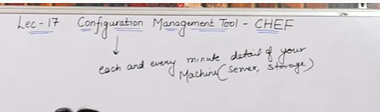 Lec-17 Configuration Management Tool - CHEF
each and every minute detail of your
Machine (Server, Storage)